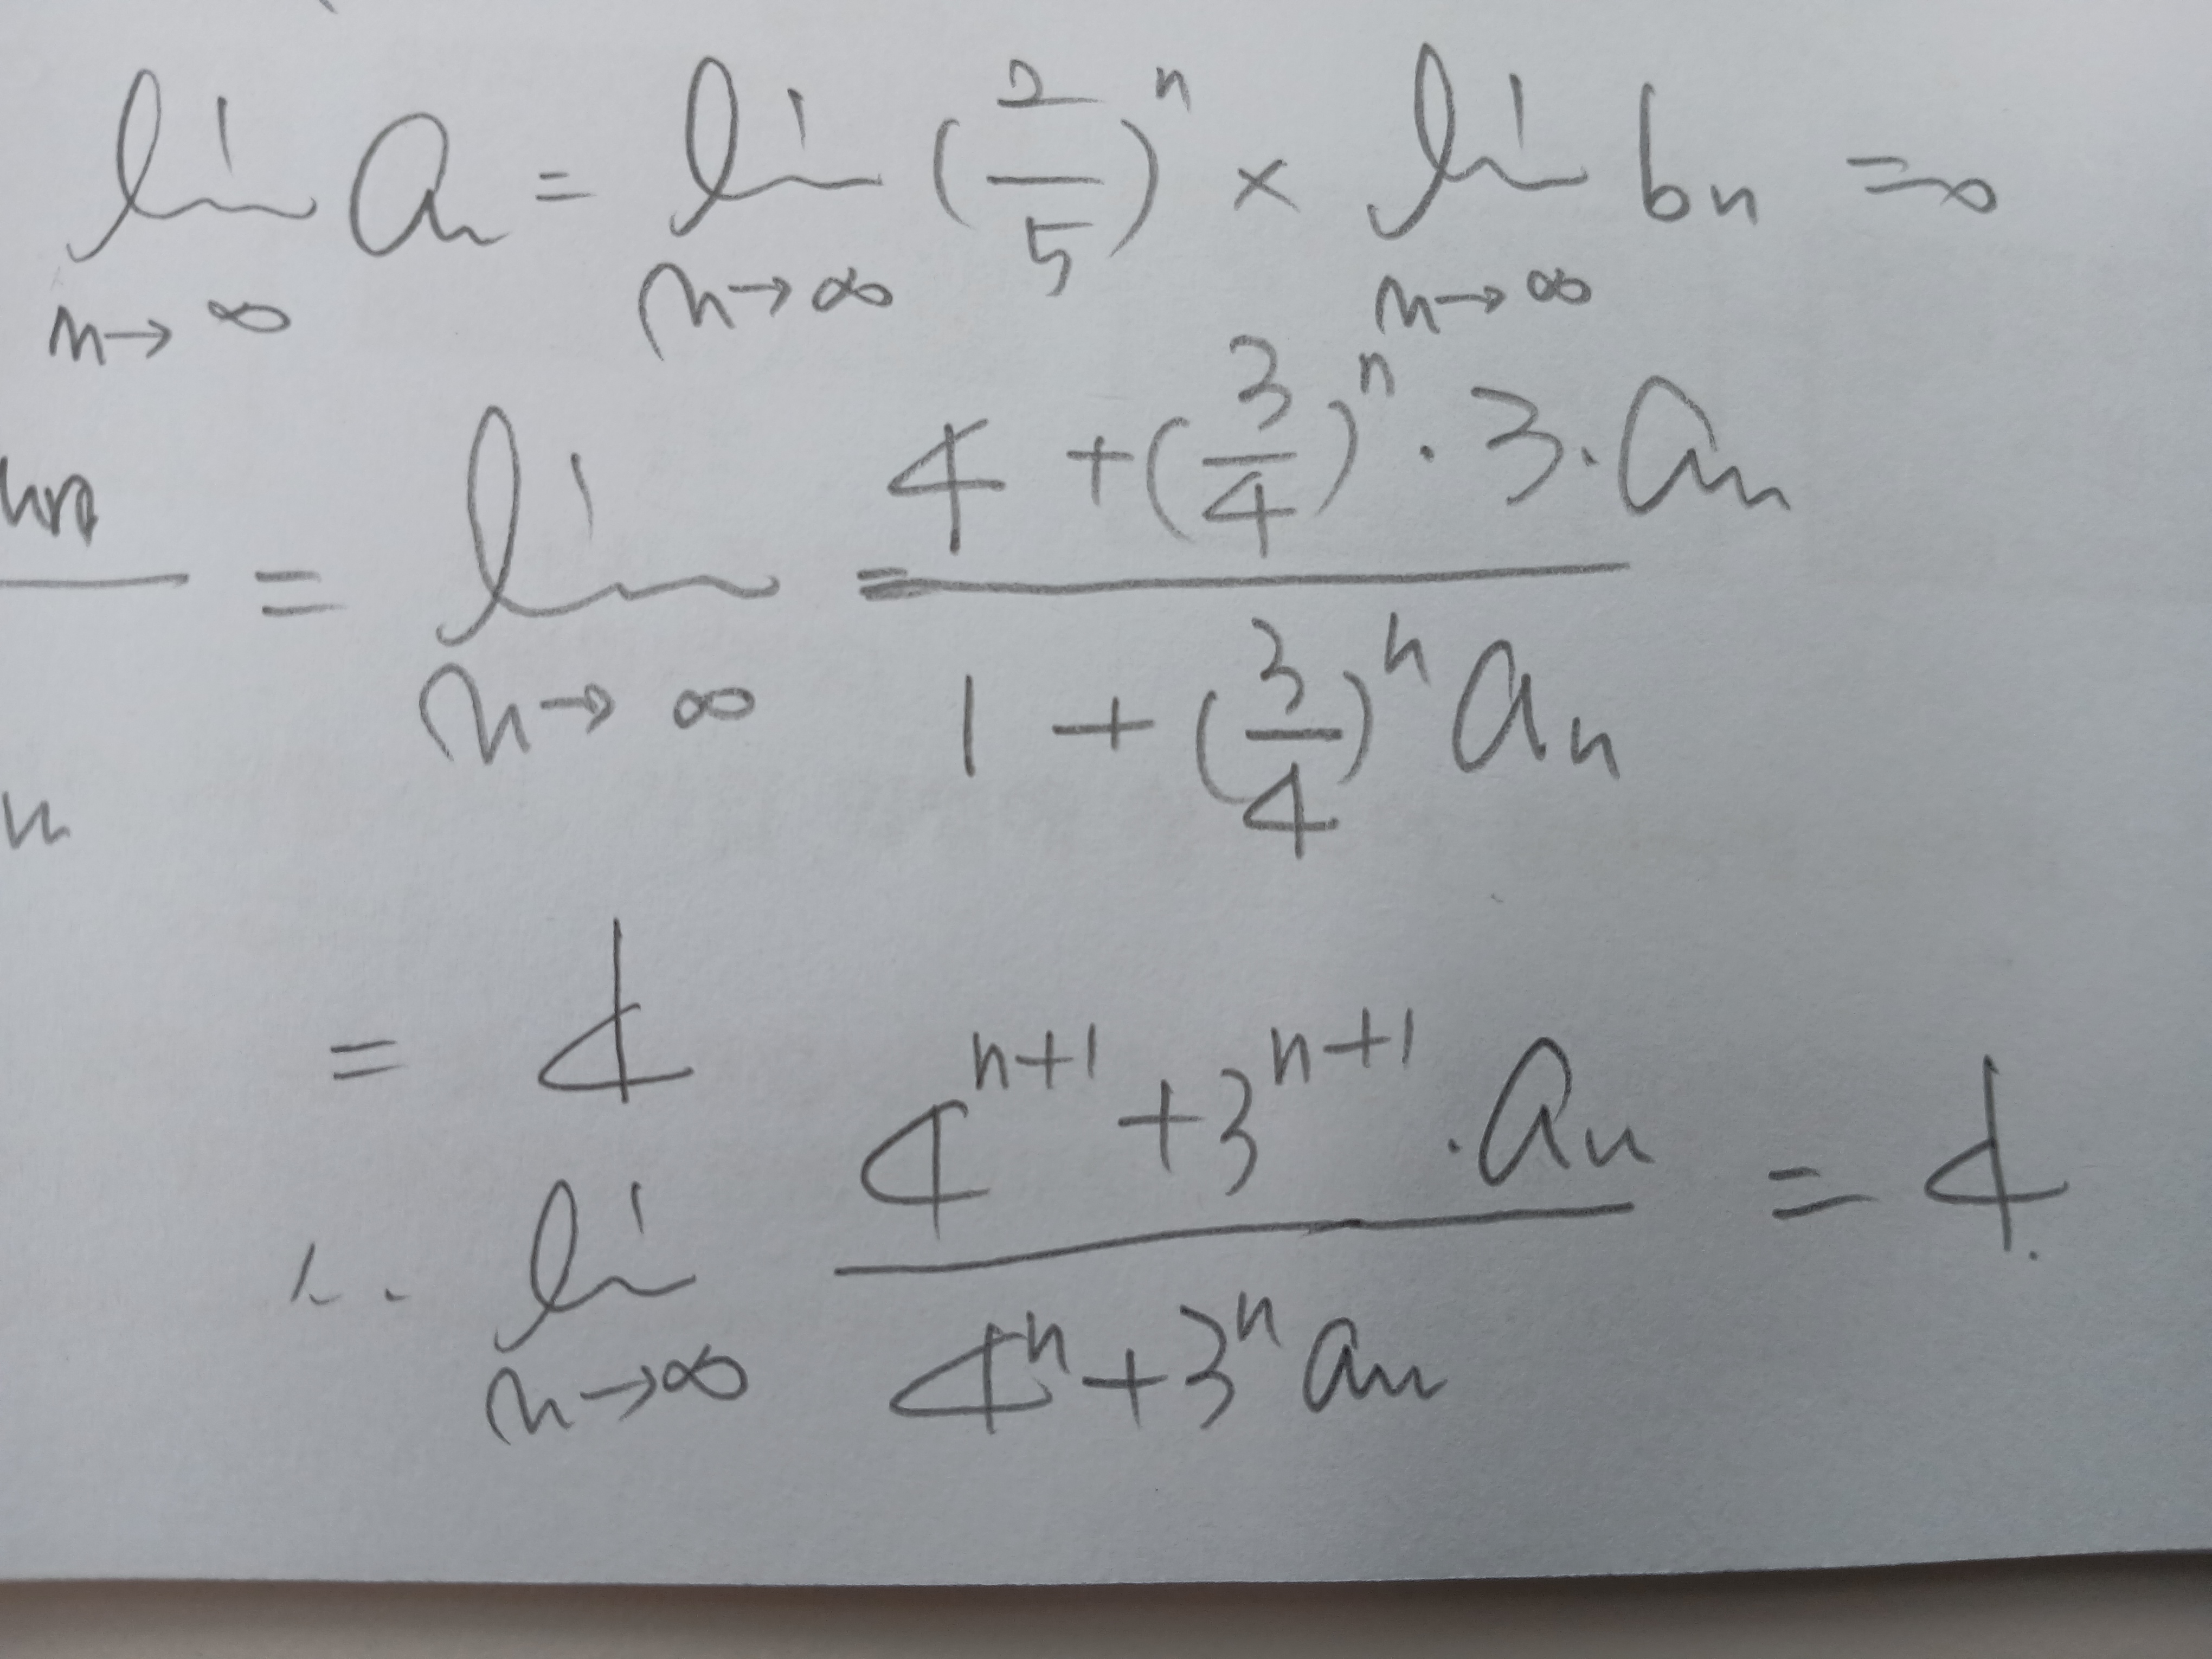 lim n→∞ an = lim n→∞ (2/5)^n × lim n→∞ bn =
= lim n→∞ = (4 + (3/4)^n · 3 · an) / (1 + (3/4)^n an)
n
= 4
∴ lim n→∞ (4^(n+1) + 3^(n+1) · an) / (4^n + 3^n an) = 4.